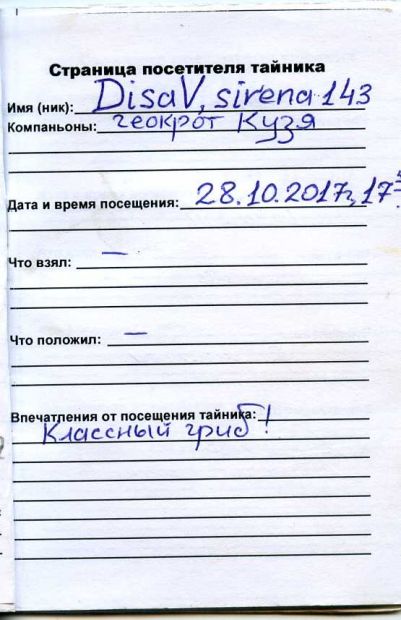 Страница посетителя тайника
Имя (ник): DisaV, sirena 143
Компаньоны: геокрот Кузя
Дата и время посещения: 28.10.2017г, 17
Что взял: —
Что положил: —
Впечатления от посещения тайника:
Классный гриб!